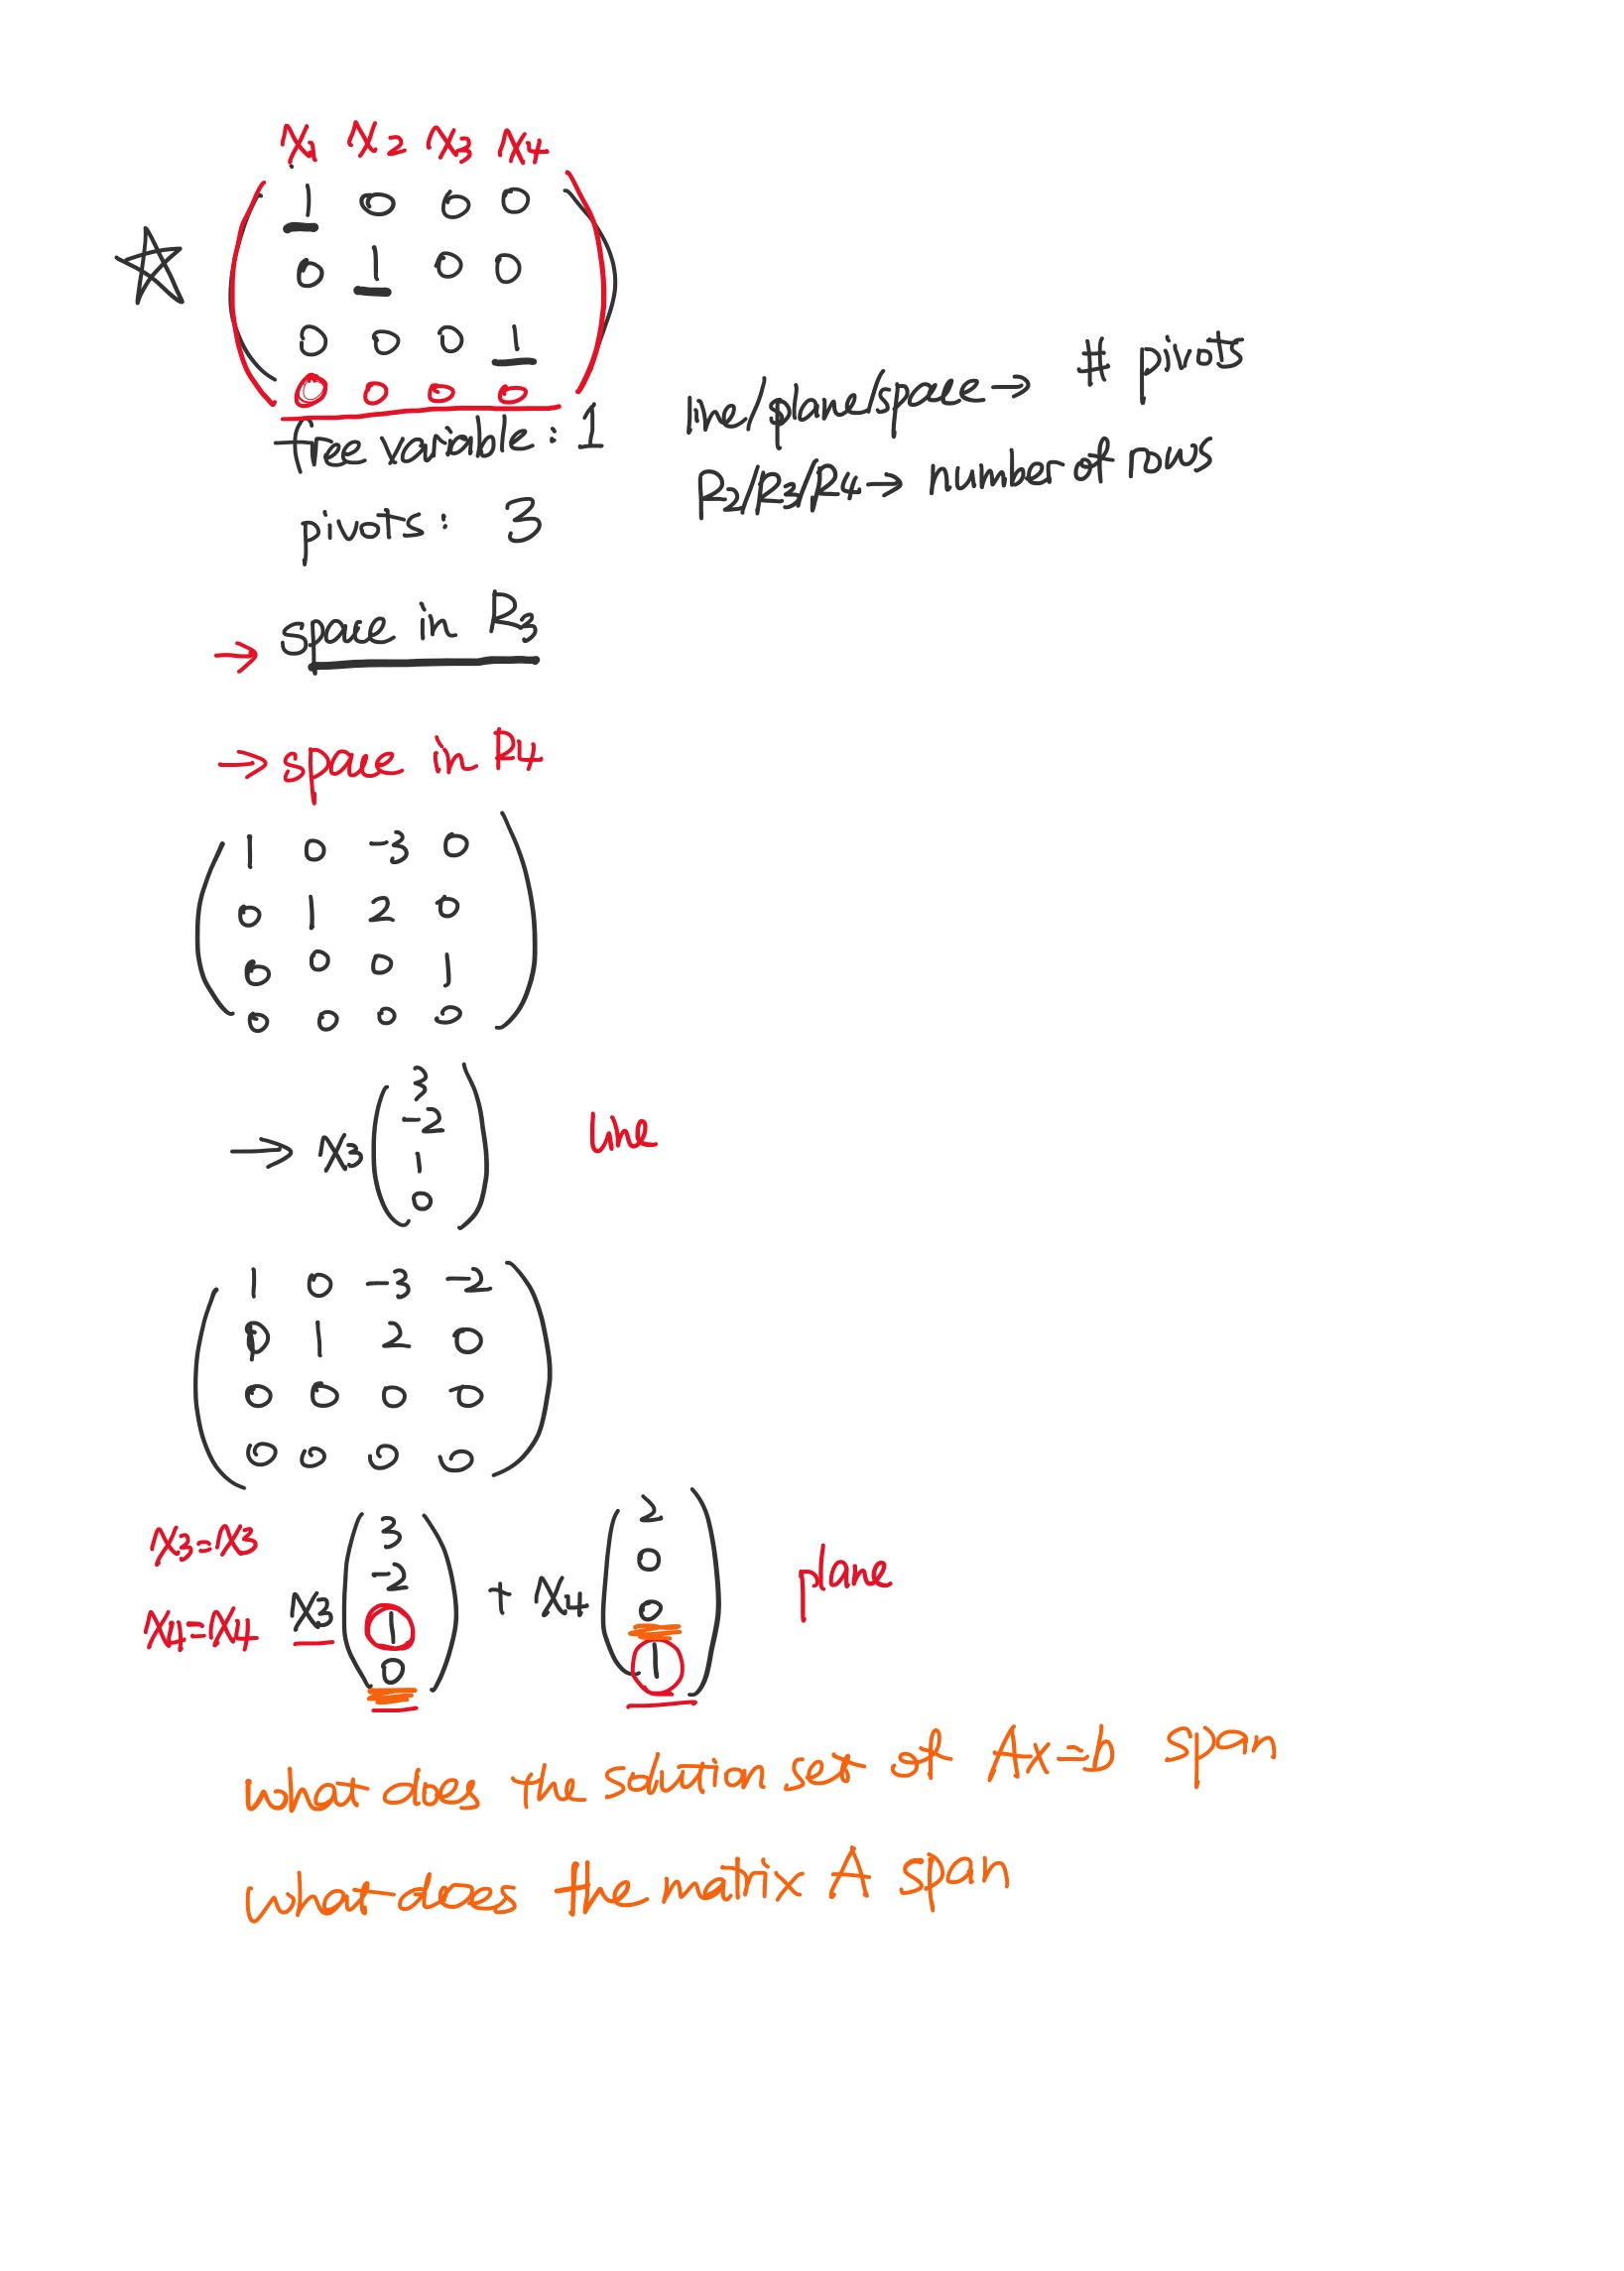 x1 x2 x3 x4
1 0 0 0
0 1 0 0
0 0 0 1
0 0 0 0
free variable: 1
pivots: 3
line/plane/space → # pivots
R2/R3/R4 → number of rows
→ space in R3
→ space in R4
1 0 -3 0
0 1 2 0
0 0 0 1
0 0 0 0
→ x3 (3 -2 1 0) line
1 0 -3 -2
0 1 2 0
0 0 0 0
0 0 0 0
x3=x3
x4=x4
x3 (3 -2 1 0) + x4 (2 0 0 1) plane
what does the solution set of Ax=b span
what does the matrix A span